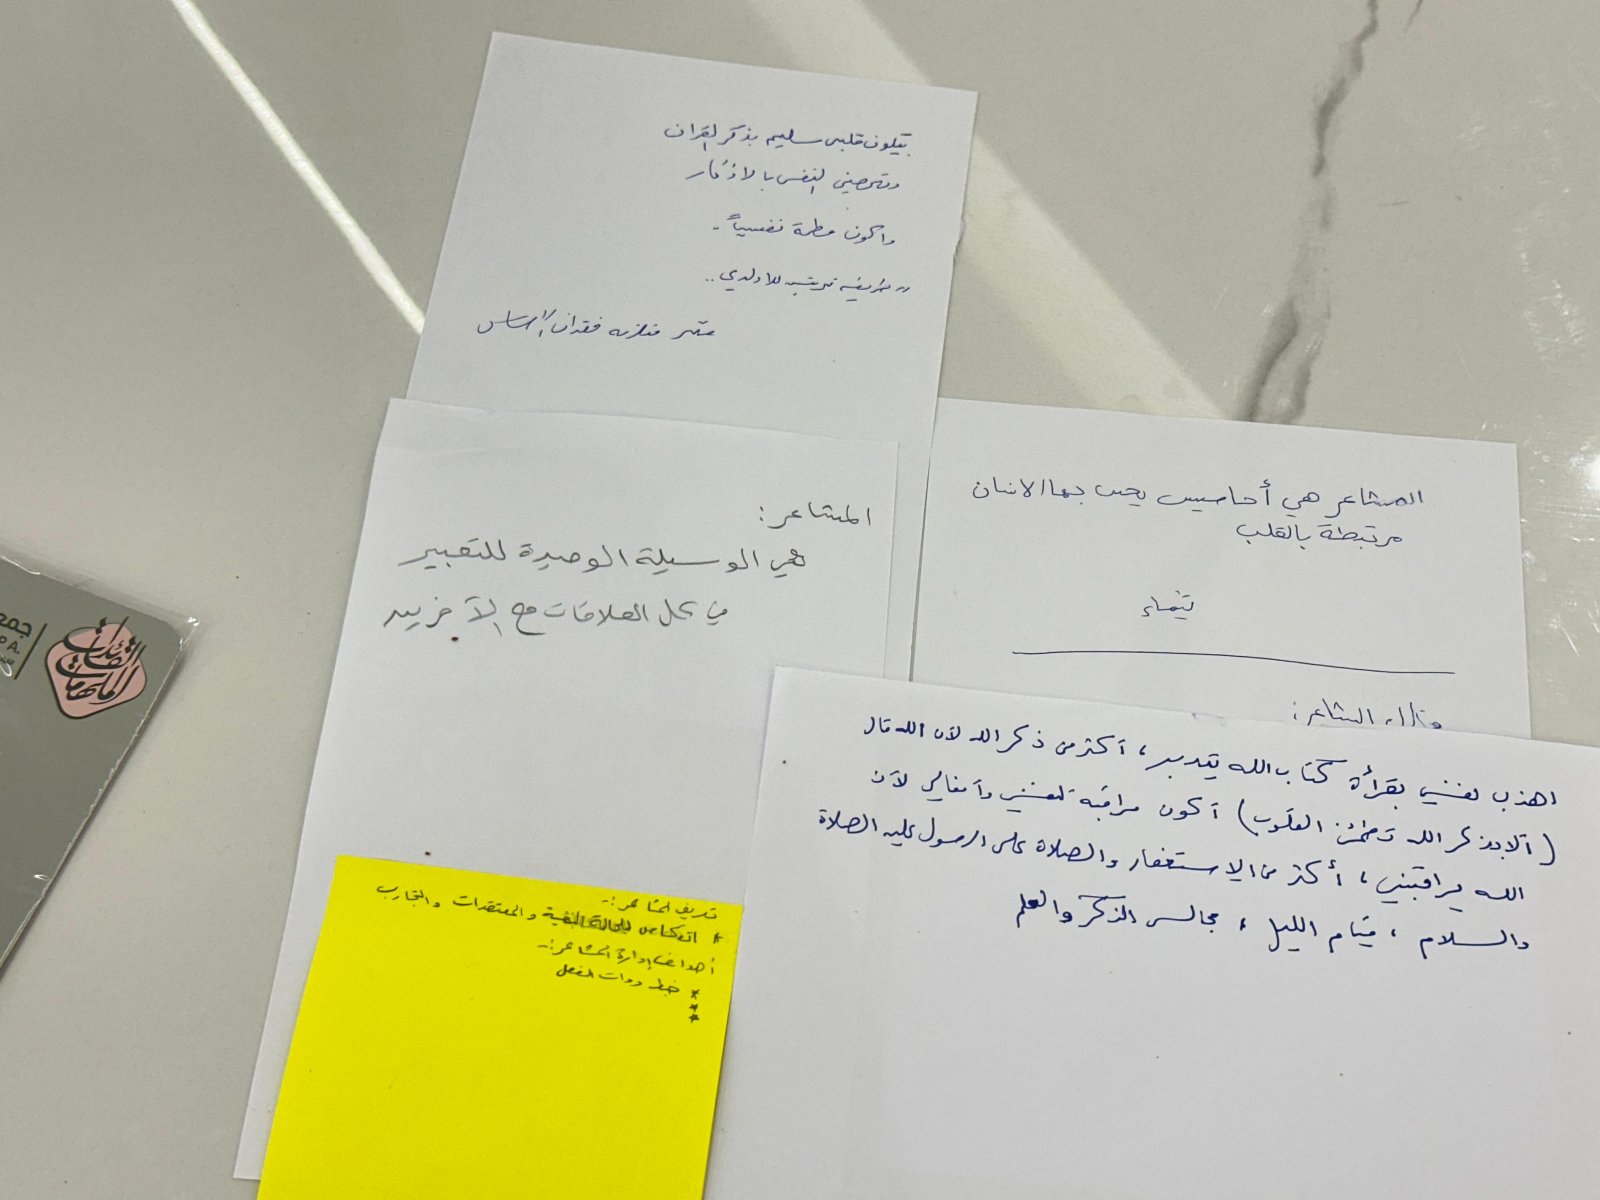 بيكون قلبي سليم بذكر القران
وتحصين النفس بالاذكار
واكون مطمئنة نفسياً.
المشاعر:
هي الوسيلة الوحيدة للتعبير
في كل العلاقات مع الآخرين
المشاعر هي أحاسيس يحس بها الانسان
مرتبطة بالقلب
اهذب نفسي بقرأة كتاب الله بتدبر، أكثر من ذكر الله لأن الله قال
(ألا بذكر الله تطمئن القلوب) أكون مراقبة لنفسي وأفعالي لأن
الله يراقبني، أكثر من الاستغفار والصلاة على الرسول عليه الصلاة
والسلام، قيام الليل، مجالس الذكر والعلم
تعريف المشاعر:-
* انعكاس للحالة النفسية والمعتقدات والتجارب
أهداف إدارة المشاعر:-
* ضبط ردات الفعل
*
*
القائدات
الملهمات